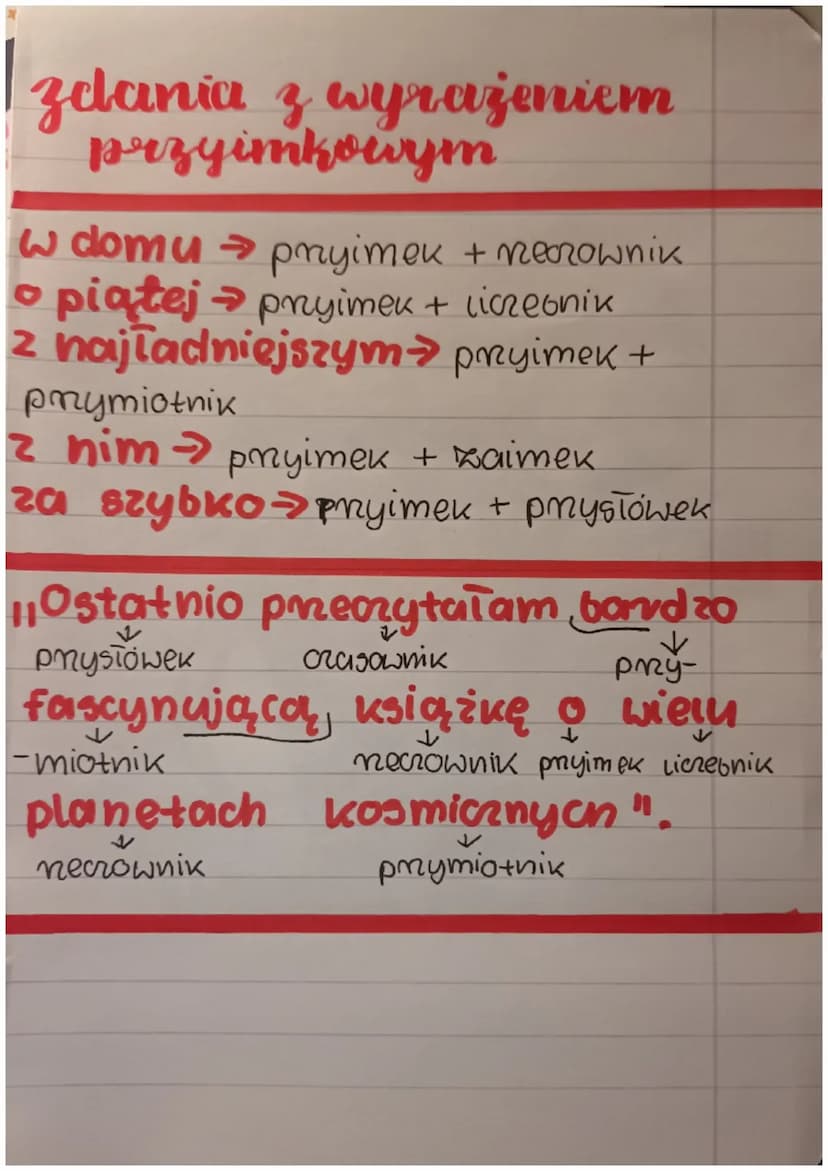 zdania z wyrażeniem
przyimkowym
w domu → przyimek + rzeczownik
o piątej → przyimek + liczebnik
z najładniejszym → przyimek +
przymiotnik
z nim → przyimek + zaimek
za szybko → przyimek + przysłówek
„Ostatnio przeczytałam bardzo
przysłówek czasownik przy-
fascynującą książkę o wielu
-miotnik rzeczownik przyimek liczebnik
planetach kosmicznych".
rzeczownik przymiotnik